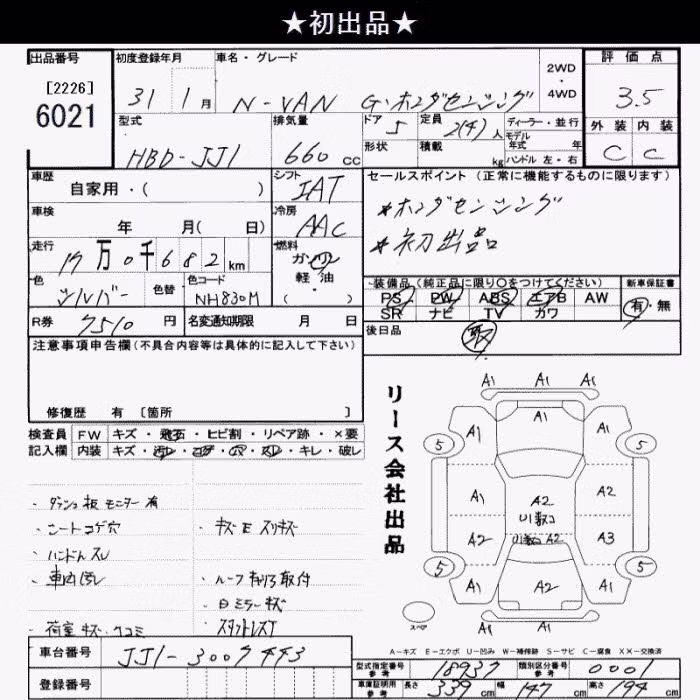 ★初出品★
出品番号 初度登録年月 車名・グレード 2WD・4WD 評価点
[2226]
6021
31 1月 N-VAN G・ホンダセンシング 3.5
型式 排気量 ドア 定員 ディーラー・並行 外装 内装
HBD-JJ1 660 cc 5 2(4)人 モデル年式 年 C C
形状 積載 kg ハンドル 左・右
車歴 シフト セールスポイント (正常に機能するものに限ります)
自家用・( ) IAT
車検 冷房 *ホンダセンシング
年 月( 日) AAC *初出品
走行 17万0千682km 燃料 ガソリン
軽油
・( )
色 シルバー 色替 色コード NH830M
装備品 (純正品に限り○をつけてください) 新車保証書
PS PW ABS エアB AW 有・無
SR ナビ TV カワ
R券 7510円 名変通知期限 月 日 後日品 取
注意事項申告欄(不具合内容等は具体的に記入して下さい)
修復歴 有 [箇所 ]
検査員 FW キズ・飛石・ヒビ割・リペア跡・×要
記入欄 内装 キズ・汚レ・コゲ・穴・スレ・キレ・破レ
リース会社出品
A1 A1 A1
A1 A1 A1
5 5
A1 A2 A2
U1数コ
A2 U1数コ A2 A3
5 5
A1 A2 A1
A1 A1 A1
スペア
・ダッシュ板 モニター有
・シートコゲ穴 ・キズE スリキズ
・ハンドルスレ
・車内汚レ ・ルーフ キャリア取付
・白ミラーキズ
・荷室キズ・ヘコミ
A-キズ E-エクボ U-凹み W-補修跡 S-サビ C-腐食 XX-交換済
車台番号 JJ1-3007443
登録番号
型式指定番号 参考 18937 類別区分番号 参考 0001
車庫証明用 参考 長さ 339cm 幅 147cm 高さ 194cm